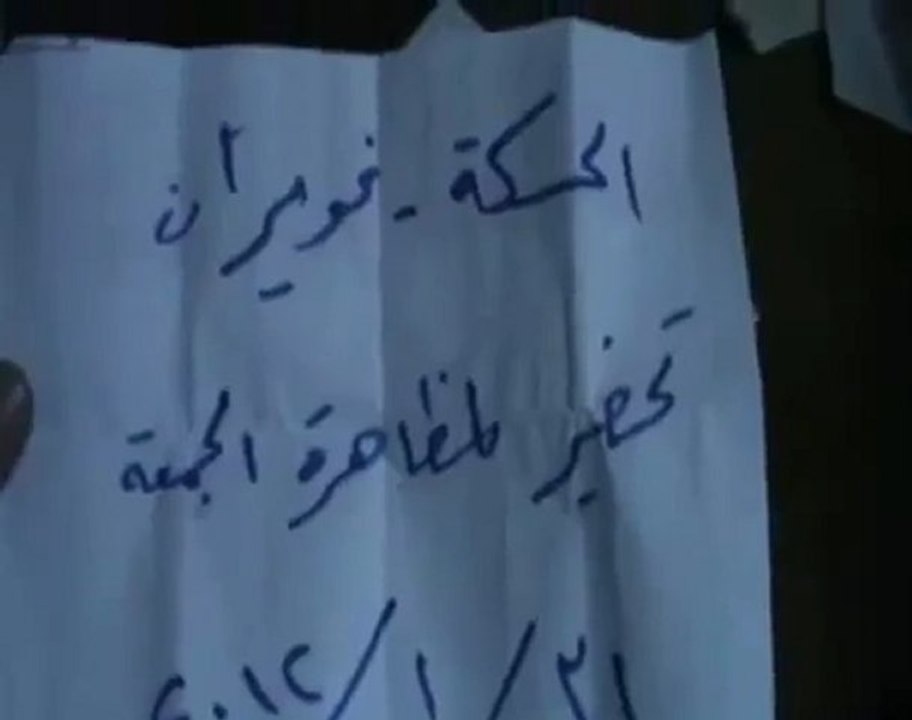 الحسكة - غويران
تحضير لمظاهرة الجمعة
٣١ / ١ / ٢٠١٢